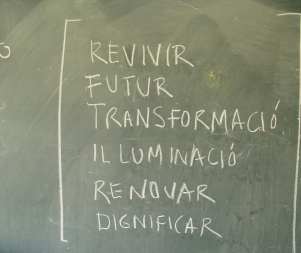 REVIVIR
FUTUR
TRANSFORMACIÓ
IL LUMINACIÓ
RENOVAR
DIGNIFICAR